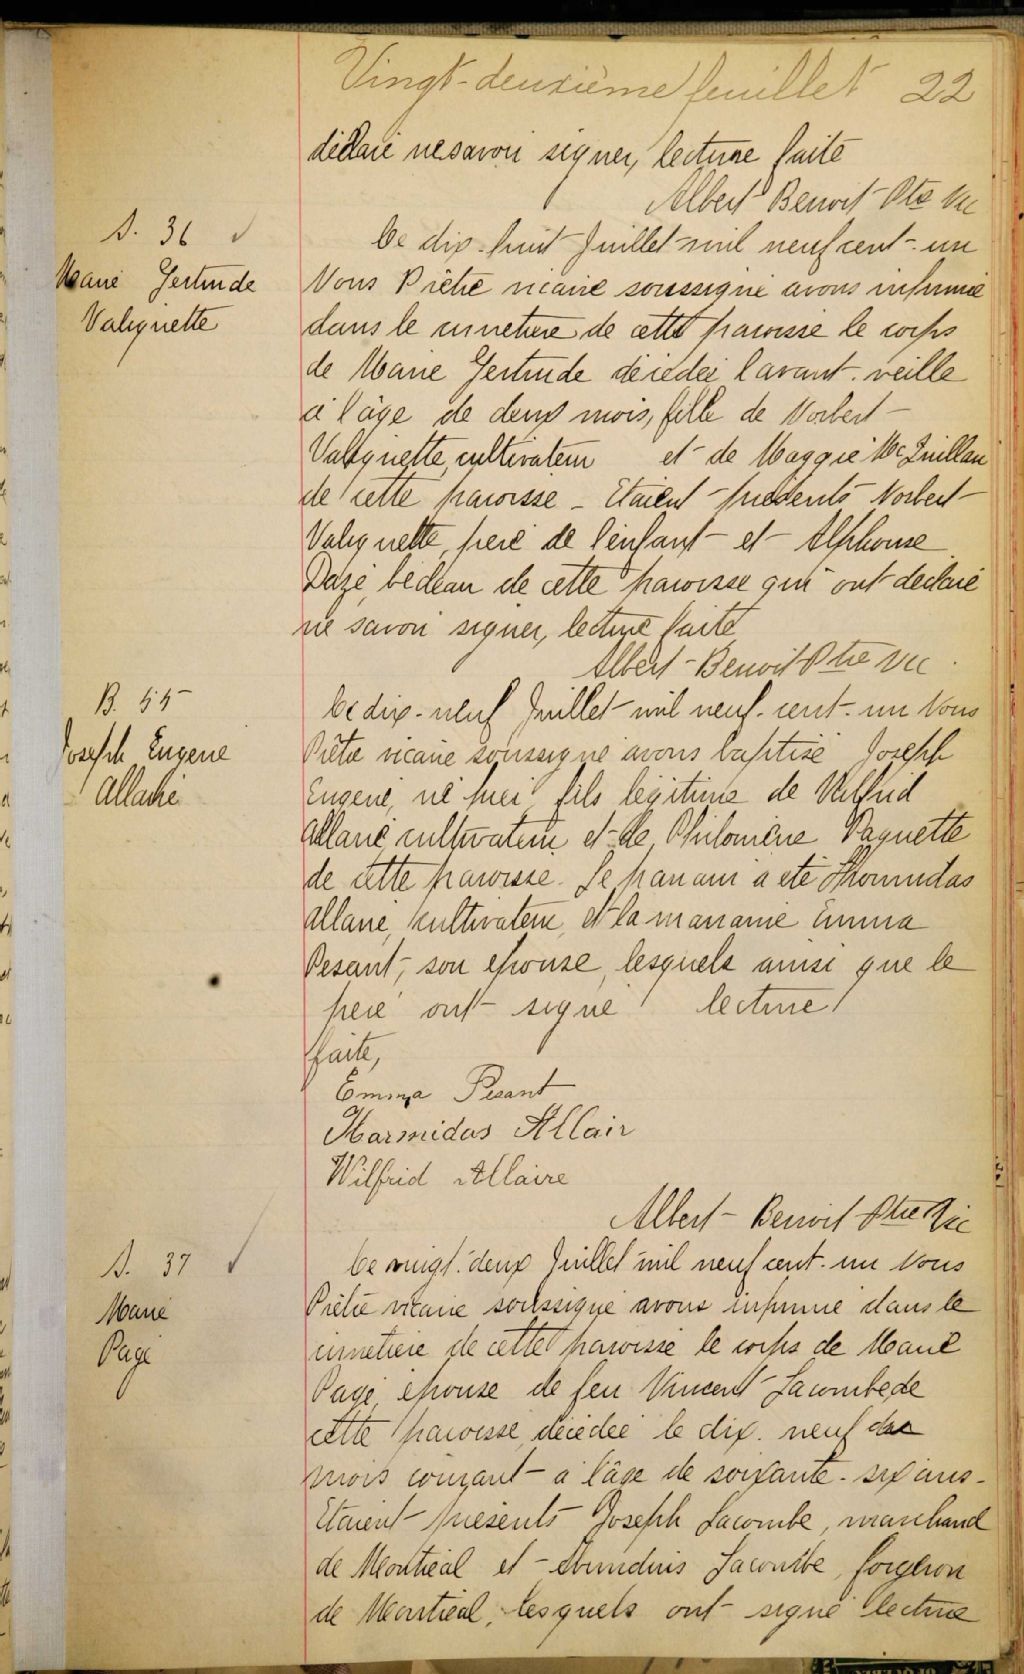 Vingt-deuxième feuillet 22
déclaré ne savoir signer, lecture faite
Albert Benoit Ptre Vic
S. 36
Marie Gertrude
Valiquette
Ce dix-huit Juillet mil neuf cent-un
Nous Prêtre vicaire soussigné avons inhumé
dans le cimetière de cette paroisse le corps
de Marie Gertrude décédée l'avant-veille
à l'âge de deux mois, fille de Norbert
Valiquette, cultivateur et de Maggie McQuillan
de cette paroisse - Etaient présents Norbert
Valiquette, père de l'enfant et Alphonse
Dazé, bedeau de cette paroisse qui ont déclaré
ne savoir signer, lecture faite
Albert Benoit Ptre Vic
B. 55
Joseph Eugene
Allaire
Ce dix-neuf Juillet mil neuf-cent-un Nous
Prêtre vicaire soussigné avons baptisé Joseph
Eugene, né hier, fils légitime de Wilfrid
Allaire, cultivateur et de Philomène Paquette
de cette paroisse. Le parrain a été
Allaire, cultivateur, et la marraine Emma
Pesant, son épouse, lesquels ainsi que le
père ont signé lecture
faite,
Emma Pesant
Harmidas Allair
Wilfrid Allaire
Albert Benoit Ptre Vic
S. 37
Marie
Pagé
Ce vingt-deux Juillet mil neuf cent-un Nous
Prêtre vicaire soussigné avons inhumé dans le
cimetière de cette paroisse le corps de Marie
Pagé, épouse de feu Vincent Lacombe, de
cette paroisse, décédée le dix-neuf du
mois courant à l'âge de soixante-six ans-
Etaient présents Joseph Lacombe, marchand
de Montréal et Lacombe, forgeron
de Montréal, lesquels ont signé lecture